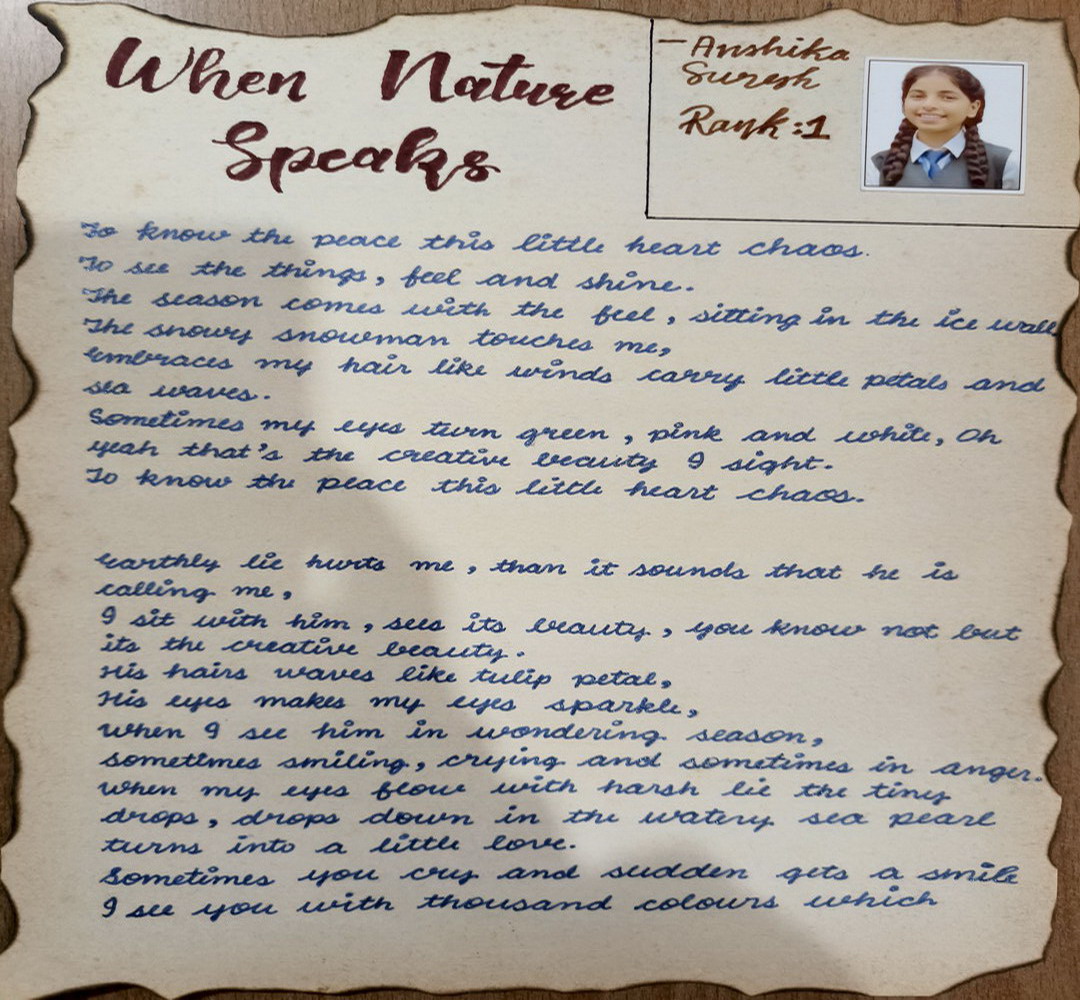 When Nature
Speaks
- Anshika
Suresh
Rank:1
To know the peace this little heart chaos.
To see the things, feel and shine.
The season comes with the feel, sitting in the ice wall
The snowy snowman touches me,
Embraces my hair like winds carry little petals and
sea waves.
Sometimes my eyes turn green, pink and white, Oh
yeah that's the creative beauty I sight.
To know the peace this little heart chaos.
Earthly lie hurts me, than it sounds that he is
calling me,
I sit with him, sees its beauty, you know not but
its the creative beauty.
His hairs waves like tulip petal,
His eyes makes my eyes sparkle,
When I see him in wondering season,
sometimes smiling, crying and sometimes in anger.
When my eyes flow with harsh lie the tiny
drops, drops down in the watery sea pearl
turns into a little love.
Sometimes you cry and sudden gets a smile
I see you with thousand colours which